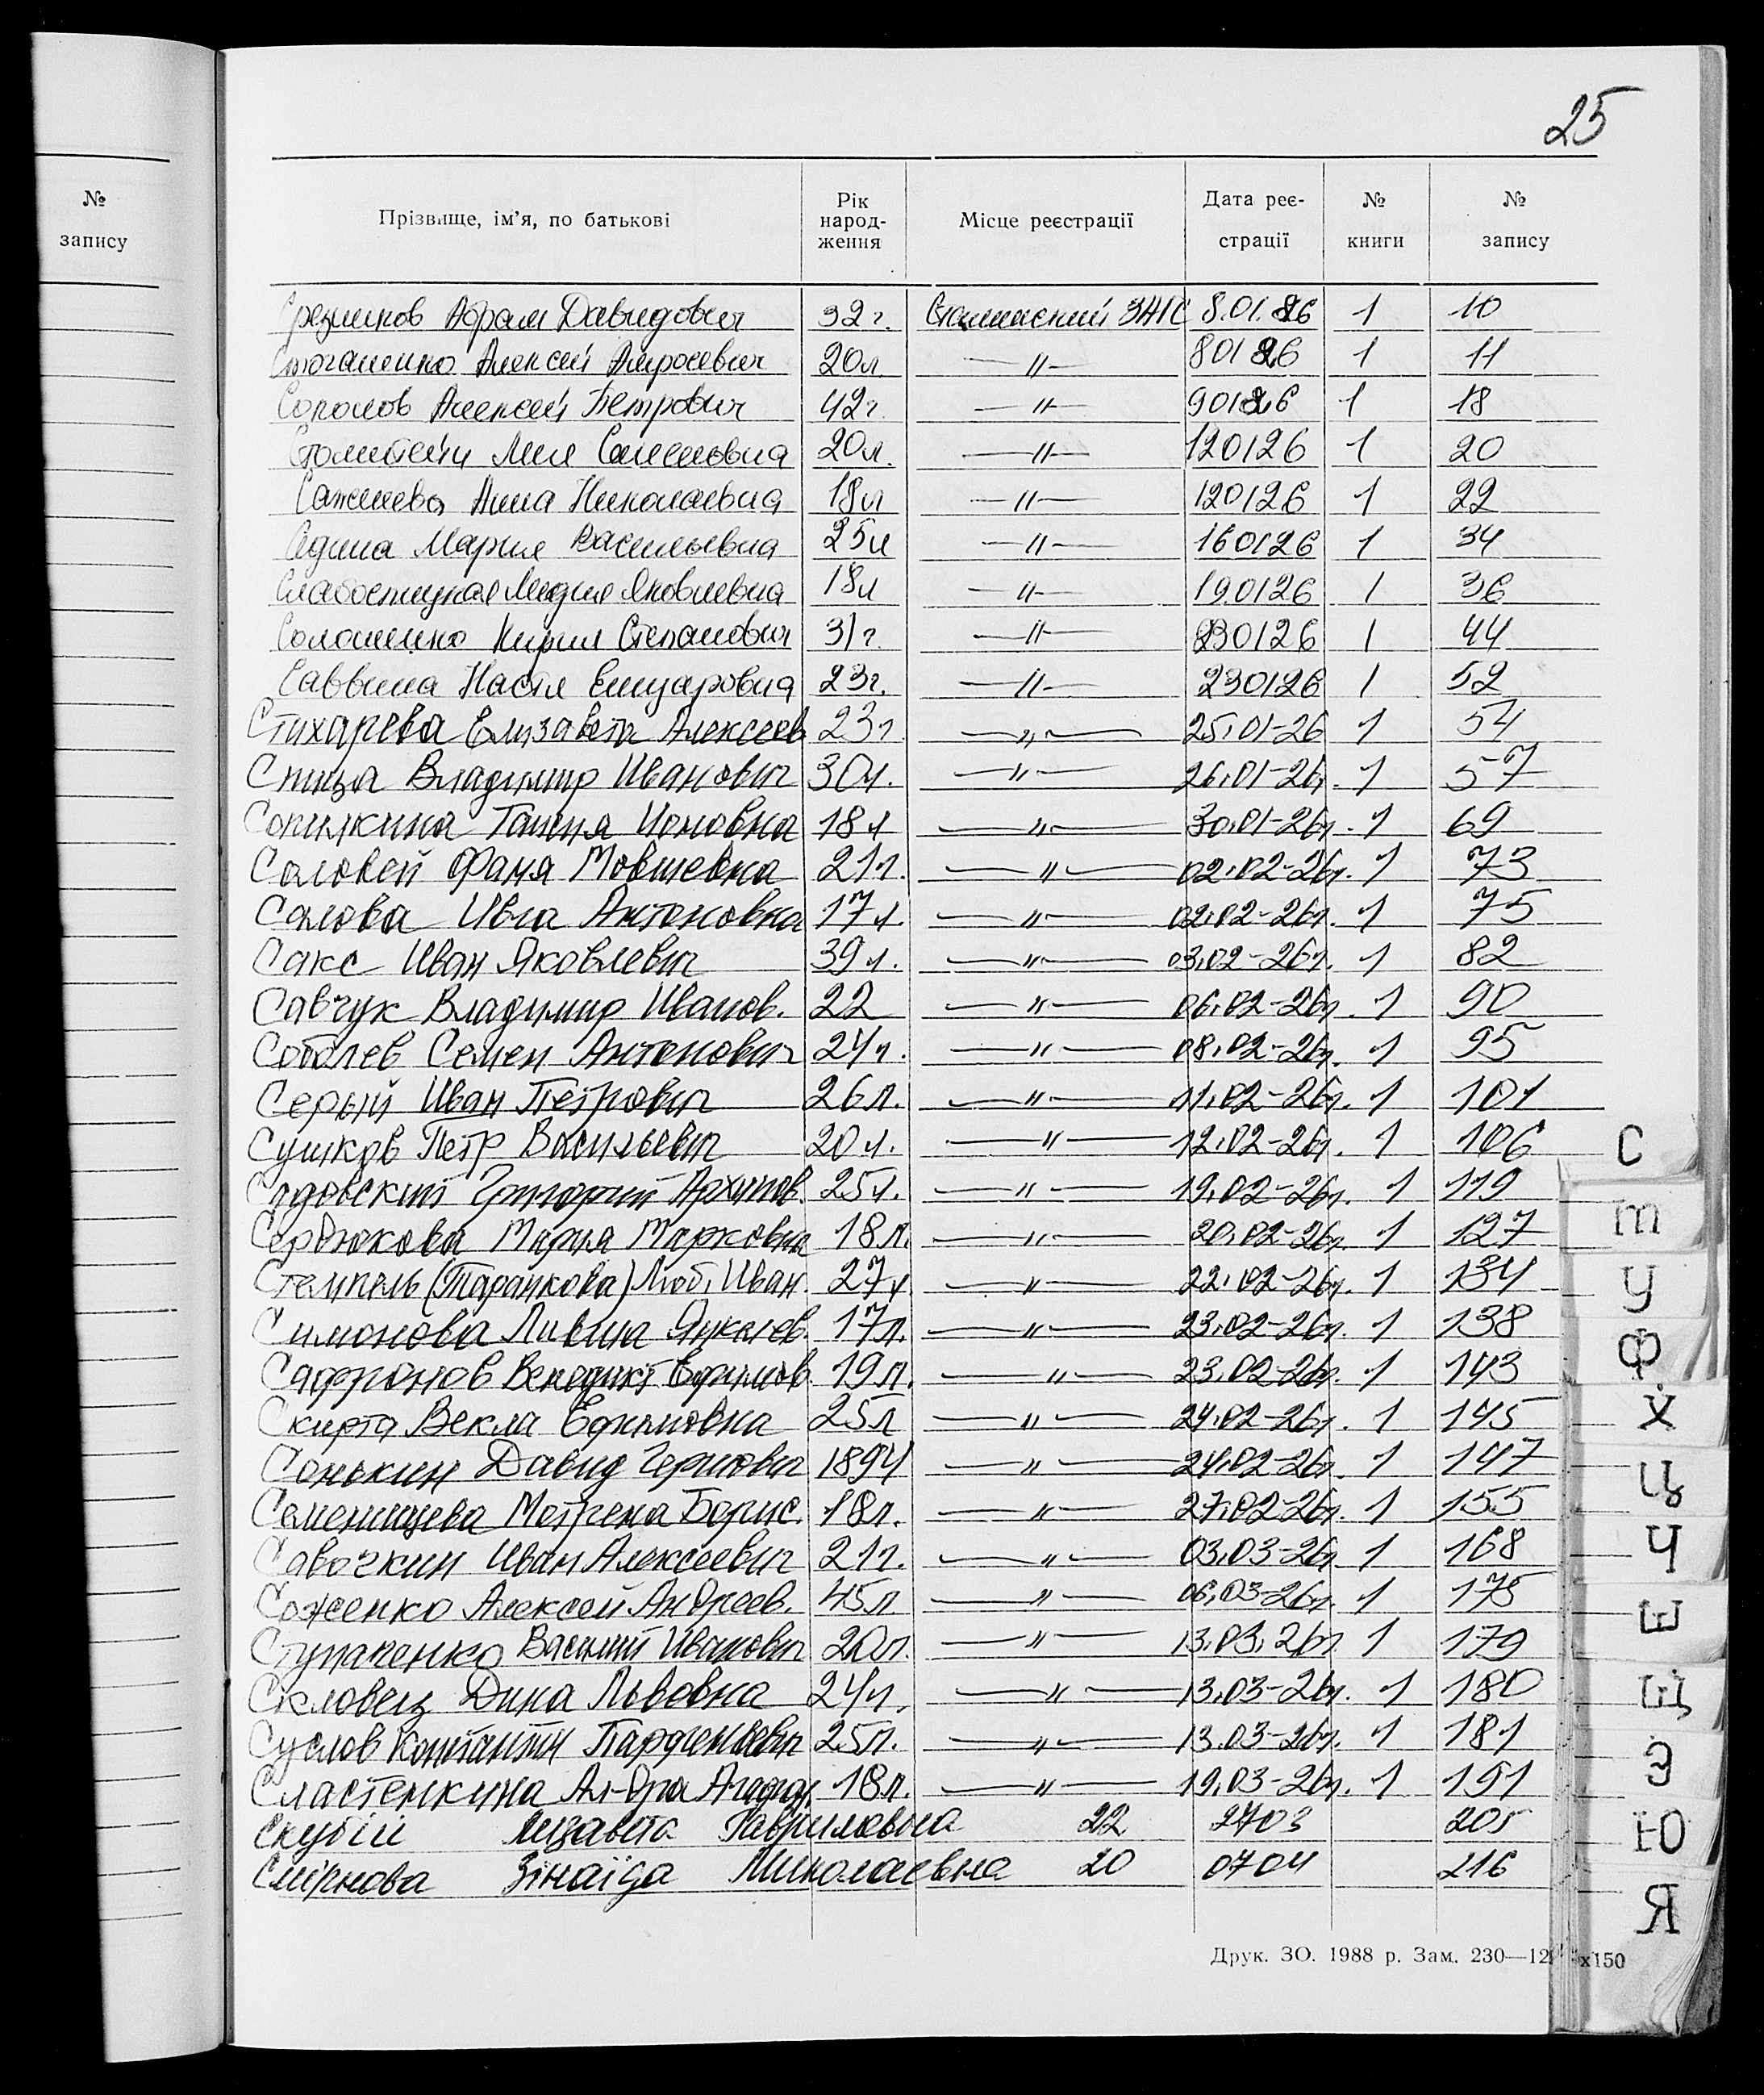 25
№
запису
Прізвище, ім'я, по батькові
Рік народ-ження
Місце реєстрації
Дата реє-страції
№ книги
№ запису
Абрам Давидович 32 г. Сталинский ЗАГС 8.01.26 1 10
Алексей 20л. —〃— 80126 1 11
Соколов Алексей Петрович 42г. —〃— 90126 1 18
20л. —〃— 120126 1 20
Сажнева Анна Николаевна 18л —〃— 120126 1 22
Седина Мария Васильевна 25л —〃— 160126 1 34
Слабоспицкая Лидия Яковлевна 18л —〃— 190126 1 36
Соломенко Кирил Степанович 31г. —〃— 230126 1 44
Саввина Настя 23г. —〃— 230126 1 52
Стихарева Елизавета Алексеев 23г —〃— 25.01-26 1 54
Спица Владимир Иванович 30л. —〃— 26.01-26г. 1 57
Сопилкина Ионовна 18л —〃— 30.01-26г. 1 69
Соловей Фаня Мовшевна 21г. —〃— 02.02-26г. 1 73
Салова Ивга Антоновна 17л. —〃— 02.02-26г. 1 75
Сакс Иван Яковлевич 39л. —〃— 03.02-26г. 1 82
Савчук Владимир Иванов. 22 —〃— 06.02-26г. 1 90
Соболев Семен Антонович 24г. —〃— 08.02-26г. 1 95
Серый Иван Петрович 26л. —〃— 11.02-26г. 1 101
Сушков Петр Васильевич 20л. —〃— 12.02-26г. 1 106
Садовский Григорий Архипов. 25л. —〃— 19.02-26г. 1 119
Сердюкова Мария Марковна 18л. —〃— 20.02-26г. 1 127
Стемпель (Таранкова) Люб. Иван. 27л —〃— 22.02-26г. 1 134
Симонова 17л. —〃— 23.02-26г. 1 138
Сафронов Венедикт Ефимов. 19л. —〃— 23.02-26г. 1 143
Скирта Векла Ефимовна 25л —〃— 24.02-26г. 1 145
Сонькин Давид 1894 —〃— 24.02-26г. 1 147
Семенищева Мотрена Борис. 18л. —〃— 27.02-26г. 1 155
Савочкин Иван Алексеевич 21г. —〃— 03.03-26г. 1 168
Соженко Алексей Андреев. 45л —〃— 06.03-26г. 1 175
Ступаченко Василий Иванович 20л. —〃— 13.03.26г. 1 179
Скловец Дина Львовна 24г. —〃— 13.03-26г. 1 180
Суслов Парфенович 25л. —〃— 13.03-26г. 1 181
Сластенкина Ал-дра 18л. —〃— 19.03-26г. 1 191
Скубій Лизавета Гавриловна 22 2703 205
Смірнова Зінаїда Миколаевна 20 0704 216
С
Т
У
Ф
Х
Ц
Ч
Ш
Щ
Э
Ю
Я
Друк. ЗО. 1988 р. Зам. 230—12 х150